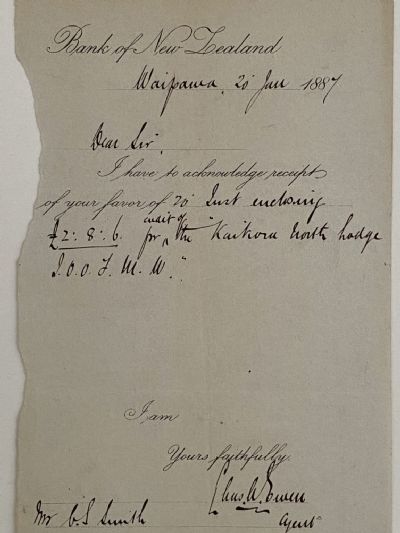 Bank of New Zealand
Waipawa, 20 Jan 1887
Dear Sir,
I have to acknowledge receipt
of your favor of 20 Inst enclosing
credit of
£2: 8: 6. for the "Kaikora North Lodge
I.O.O.F. M.U."
I am
Yours faithfully
Chas. A. Ewen
Agent
Mr C. S. Smith